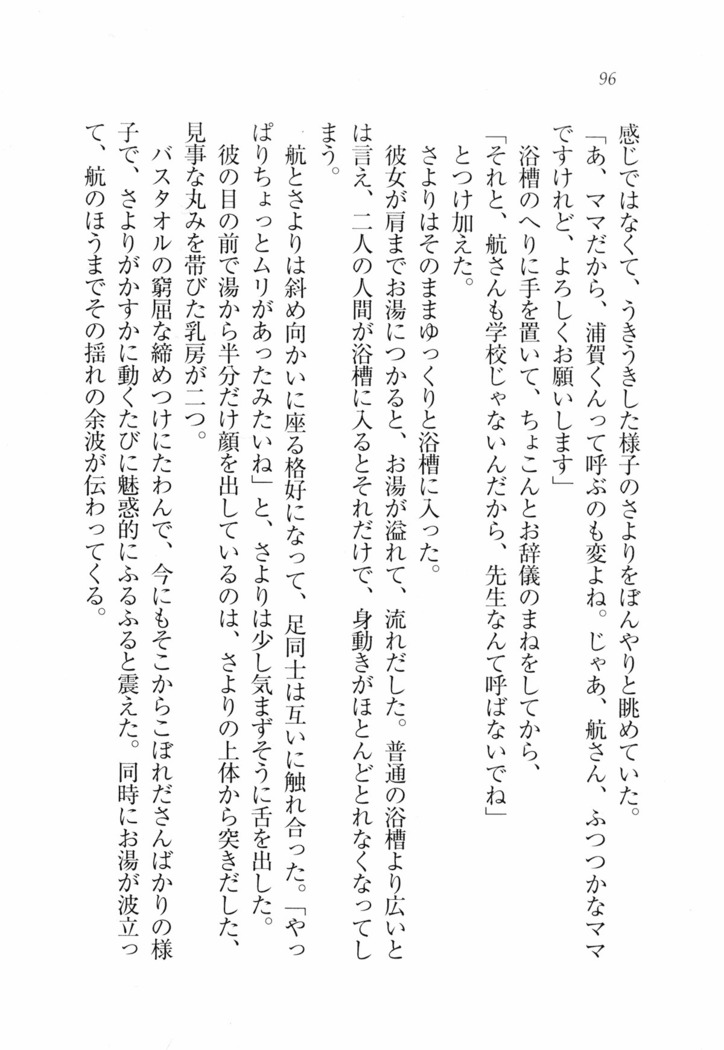 96
感じではなくて、うきうきした様子のさよりをぼんやりと眺めていた。
「あ、ママだから、浦賀くんって呼ぶのも変よね。じゃあ、航さん、ふつつかなママ
ですけれど、よろしくお願いします」
浴槽のへりに手を置いて、ちょこんとお辞儀のまねをしてから、
「それと、航さんも学校じゃないんだから、先生なんて呼ばないでね」
とつけ加えた。
さよりはそのままゆっくりと浴槽に入った。
彼女が肩までお湯につかると、お湯が溢れて、流れだした。普通の浴槽より広いと
は言え、二人の人間が浴槽に入るとそれだけで、身動きがほとんどとれなくなってし
まう。
航とさよりは斜め向かいに座る格好になって、足同士は互いに触れ合った。「やっ
ぱりちょっとムリがあったみたいね」と、さよりは少し気まずそうに舌を出した。
彼の目の前で湯から半分だけ顔を出しているのは、さよりの上体から突きだした、
見事な丸みを帯びた乳房が二つ。
バスタオルの窮屈な締めつけにたわんで、今にもそこからこぼれださんばかりの様
子で、さよりがかすかに動くたびに魅惑的にふるふると震えた。同時にお湯が波立っ
て、航のほうまでその揺れの余波が伝わってくる。